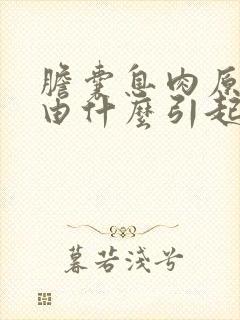 膽囊息肉原
由什麼引起
暮若淺兮